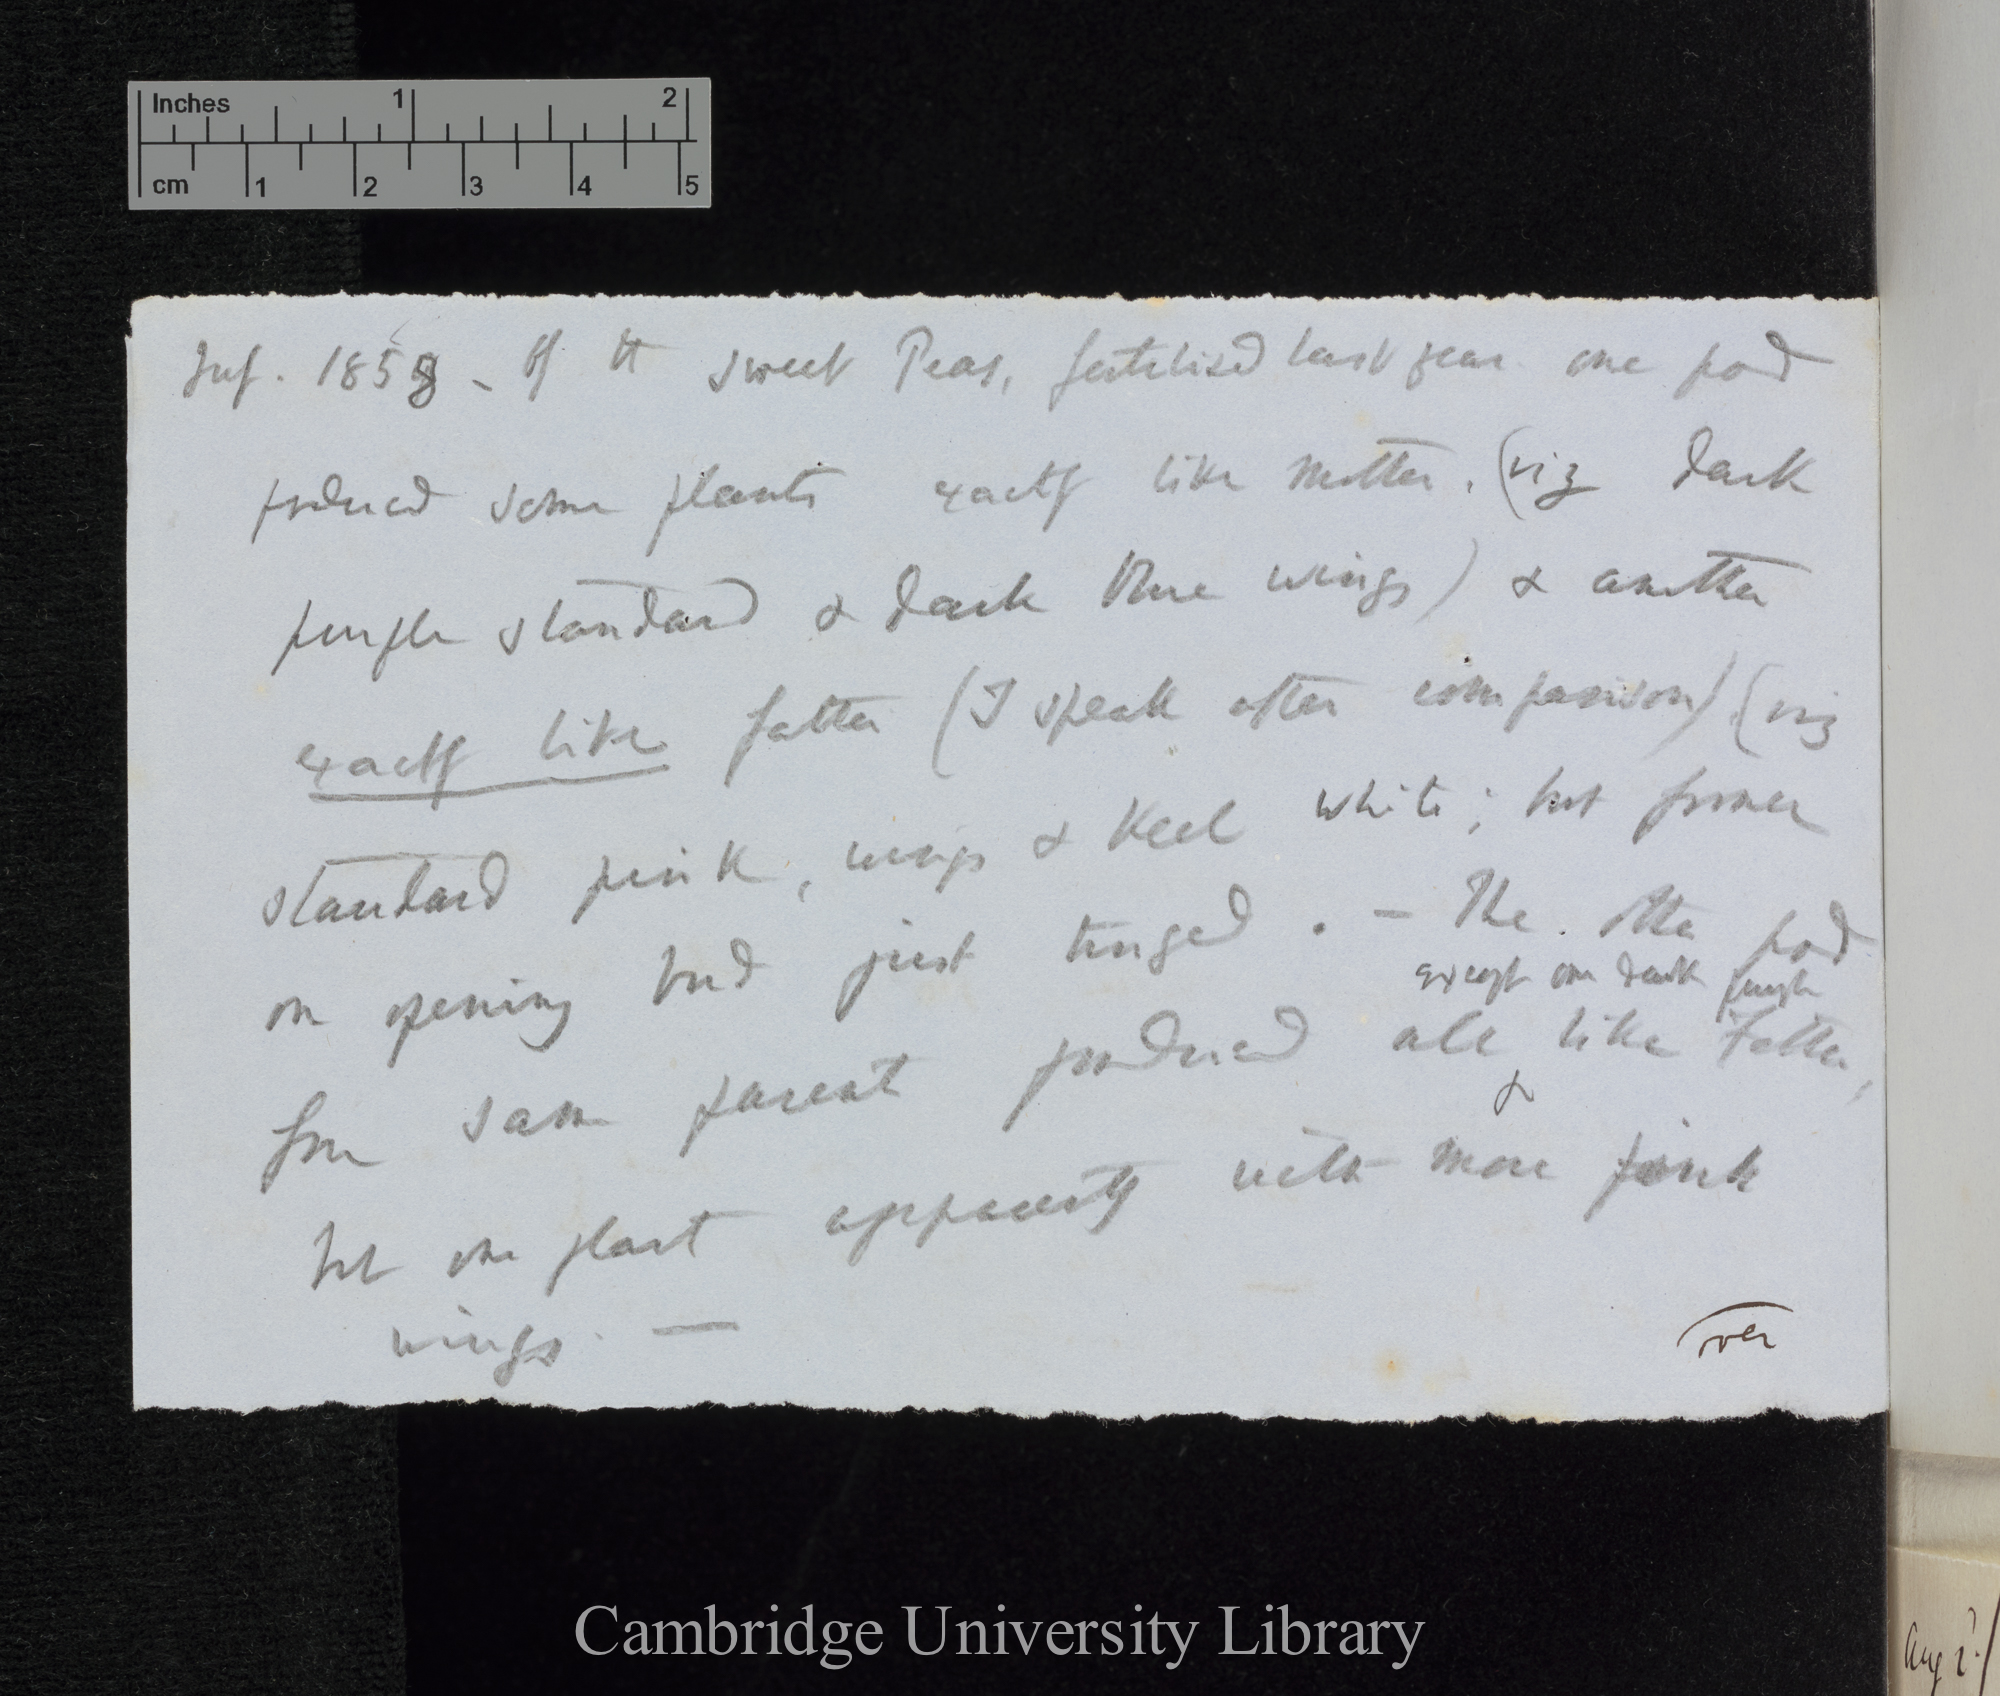 Inches 1 2
cm 1 2 3 4 5
July. 1858 - Of the sweet Peas, fertilised last year one pod
produced some plants exactly like Mother. (viz dark
purple standard & dark blue wings) & another
exactly like father (I speak after comparison) (viz
standard pink, wings & Keel white; but former
on opening bud just tinged. - The other pod
except one dark purple
from same parent produced all like Father,
&
but one plant apparently with more pink
wings. —
over
Aug 2
Cambridge University Library